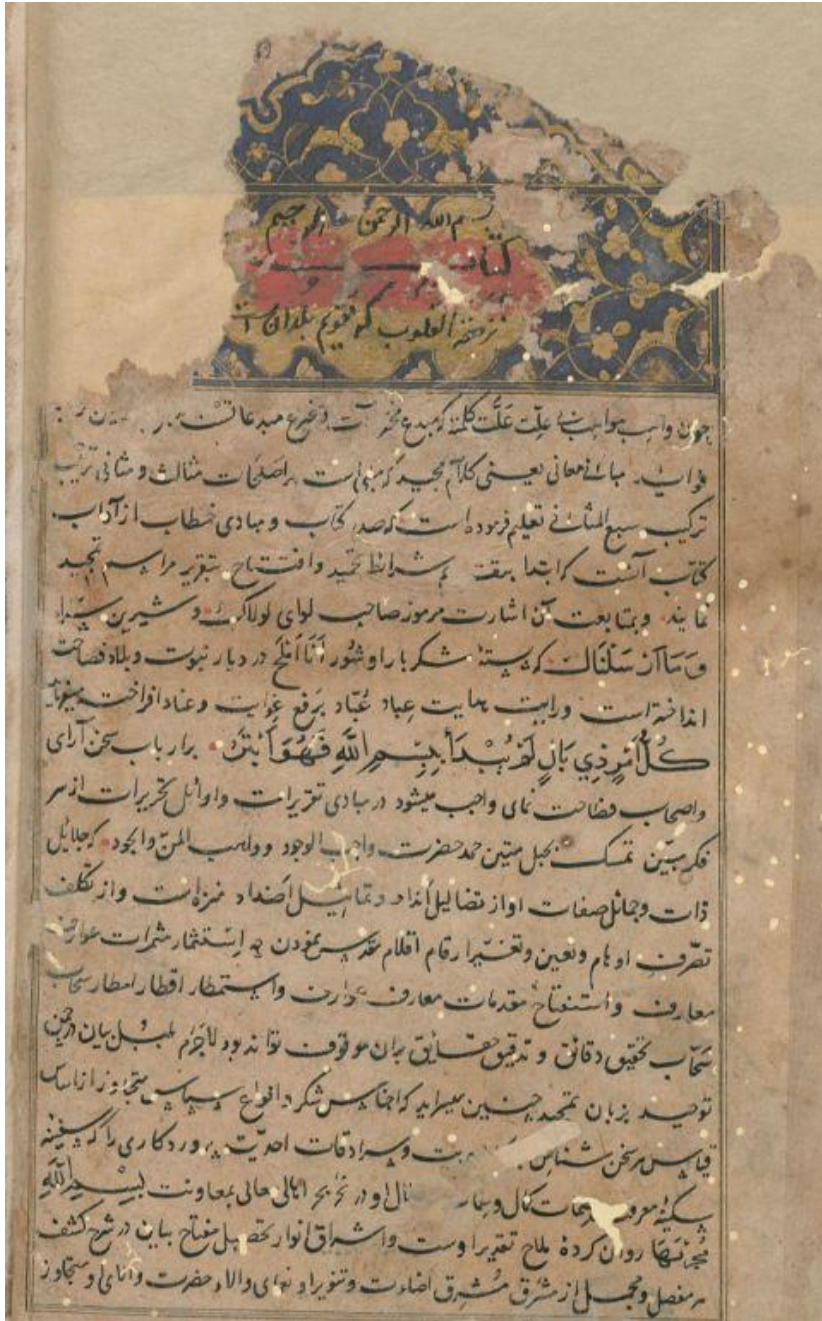 بسم الله الرحمن الرحیم
کتاب
نزهة القلوب که تقویم بلدان است
چون واهب مواهب علت کلمته که مبدع
فواید مبانی معانی یعنی کلام مجید که مبنی است بر اصطلاحات مثالث و مثانی ترتیب
ترکیب سبع المثانی تعلیم فرموده است که صدر کتاب و مبادی خطاب از آداب
کتاب آنست که ابتدا شرایط تحمید و افتتاح بتقریر مراسم تمجید
نمایند و بمتابعت آن اشارت مرموز صاحب لوای لولاک و شیرین
وَمَا اَرْسَلْنَاكَ که پستۀ شکربار او شور اَنَا اَمْلَحُ در دیار نبوت و بلاد فصاحت
انداخته است و رایت هدایت عباد عُبّاد برفع غوایت و عناد افراخته میفرماید
كُلُّ اَمْرٍ ذِي بَالٍ لَمْ يُبْدَأ بِبِسْمِ اللَّهِ فَهُوَ اَبْتَرُ بر ارباب سخن آرای
واصحاب فصاحت نمای واجب میشود در مبادی تقریرات و اوائل تحریرات از سر
فکر مبین تمسک بحبل متین حمد حضرت واجب الوجود و واهب المنّ والجود که جلائل
ذات و جمائل صفات او از تضالیل انداد و تماثیل اضداد منزه است و از تکلف
تصرّف اوهام و تعین و تغییر ارقام اقلام مقدس نمودن چه استثمار ثمرات عوارف
معارف و استفتاح مقدمات معارف عوارف و استمطار اقطار امطار سحاب
سحّاب تحقیق دقائق و تدقیق حقایق بران موقوف تواند بود لاجرم بلبل بیان در چمن
توحید بزبان تمجید چنین میسراید که اجناس شکر و انواع سپاس متجاوز از اساس
قیاس مر سخن شناس و سرادقات احدیت پروردکاری را که سفینه
سکینۀ معرو کمال و او در تحریر اهالی عالی بمعاونت بِسْمِ اللَّهِ
مَجْرٰىهَا روان کردۀ ملاح تقدیر اوست و اشراق انوار تحصیل مفتاح بیان در شرح کشف
هر مفصل و مجمل از مشرق مُشرِق اضاءت و تنویر او نعمای والاء حضرت دانای او متجاوز